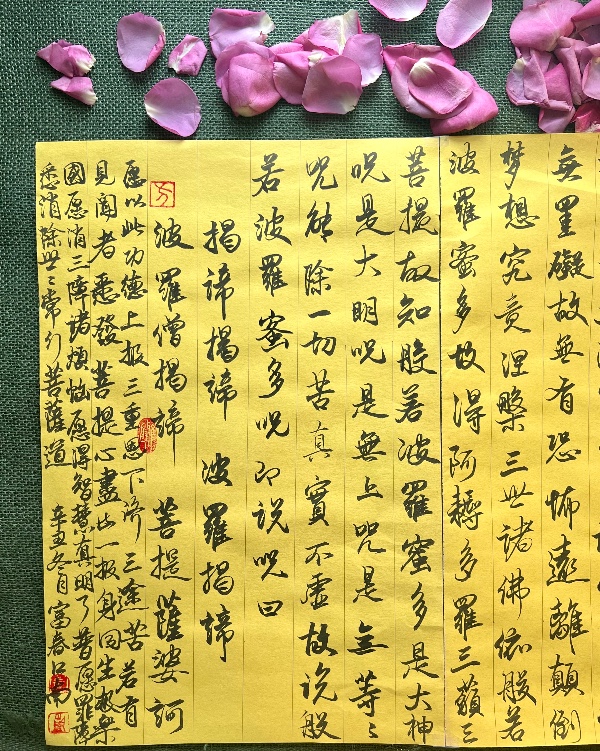 無罣礙故無有恐怖遠離顛倒
梦想究竟涅槃三世诸佛依般若
波羅蜜多故得阿耨多羅三藐三
菩提故知般若波羅蜜多是大神
咒是大明咒是無上咒是無等々
咒能除一切苦真實不虛故说般
若波羅蜜多咒即说咒曰
揭諦揭諦 波羅揭諦
波羅僧揭諦 菩提薩婆訶
愿以此功德上报三重恩下济三途苦若有
見闻者悉發菩提心盡此一报身同生极樂
國愿消三障诸烦恼愿得智慧真明了普愿罪障
悉消除世々常行菩薩道 辛丑冬月富春